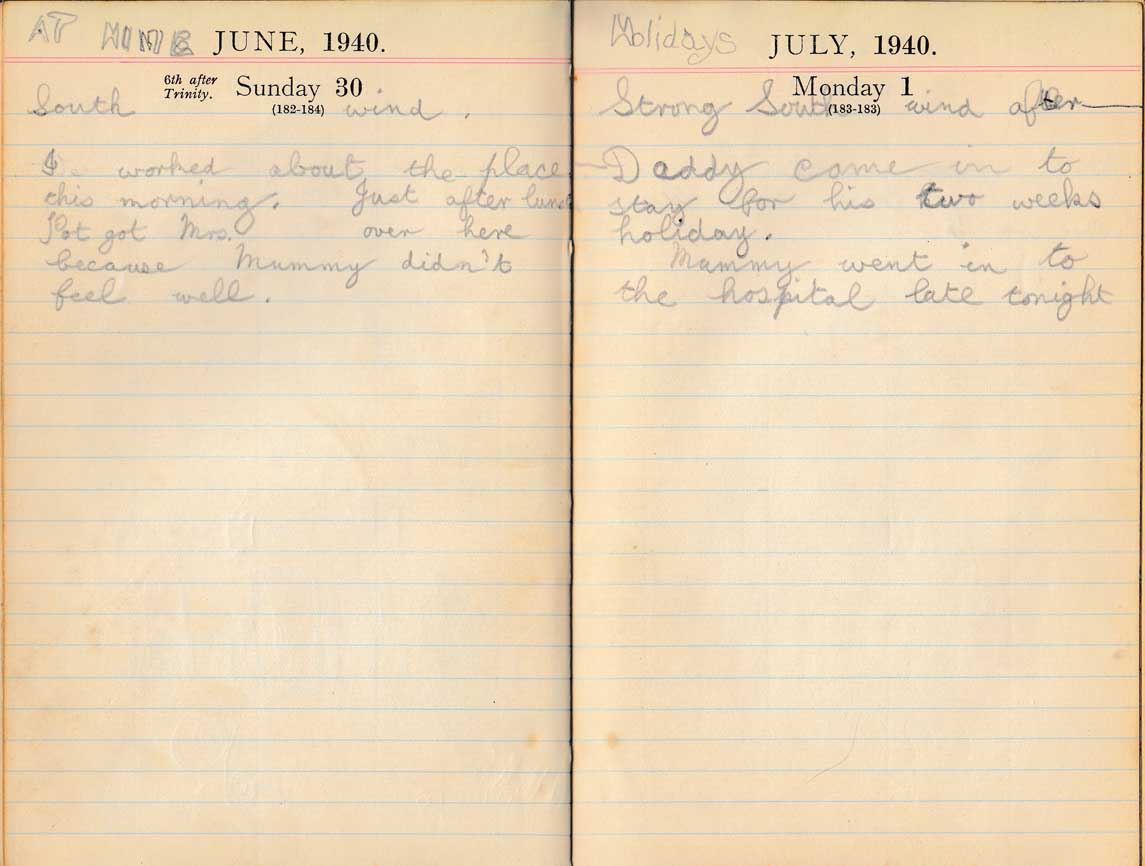 AT HOME JUNE, 1940.
6th after
Trinity. Sunday 30
(182-184)
South wind.
I worked about the place
this morning. Just after lunch
Pat got Mrs. over here
because Mummy didn't
feel well.
Holidays JULY, 1940.
Monday 1
(183-183)
Strong South wind after
Daddy came in to
stay for his two weeks
holiday.
Mummy went in to
the hospital late tonight